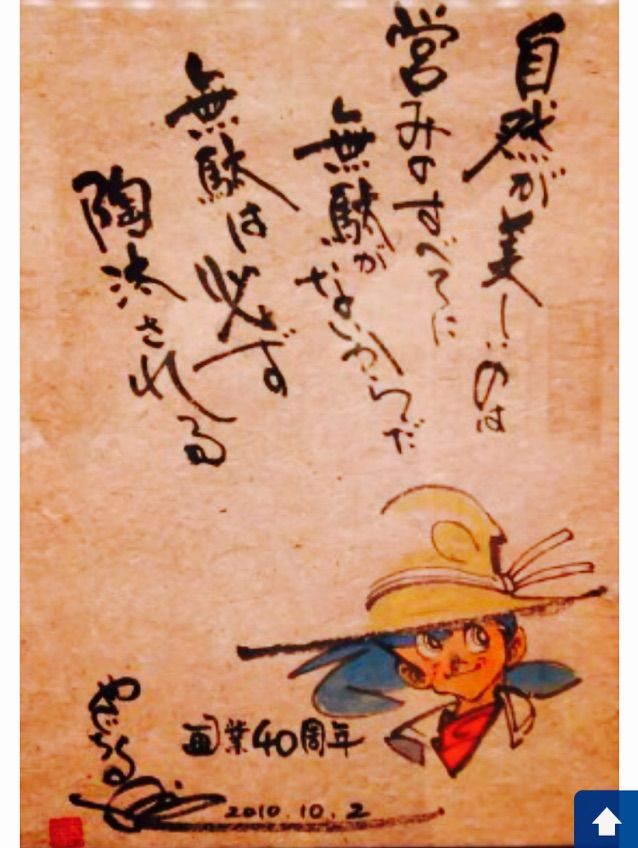 自然が美しいのは
営みのすべてに
無駄がないからだ
無駄は必ず
陶汰される
画業40周年
2010.10.2